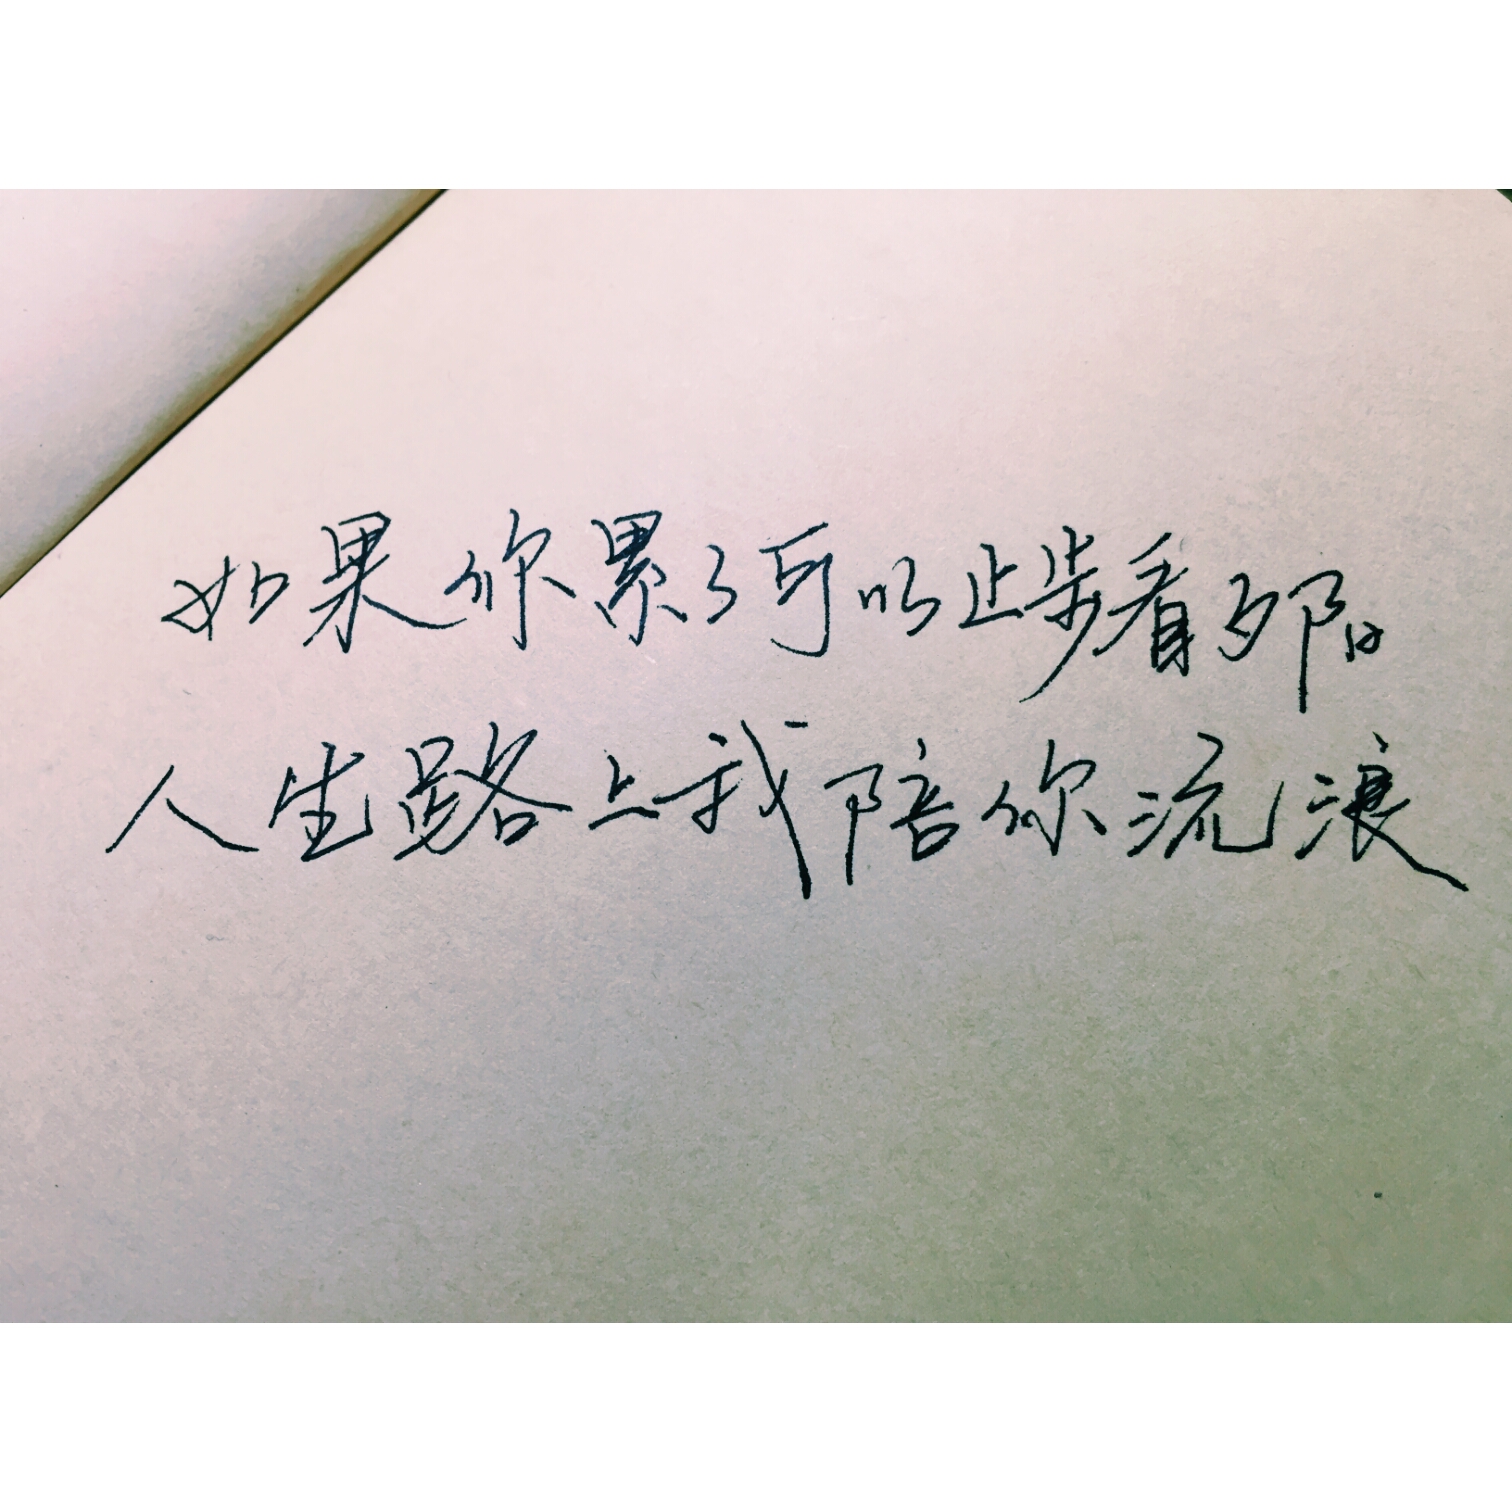 如果你累了可以止步看夕阳
人生路上我陪你流浪